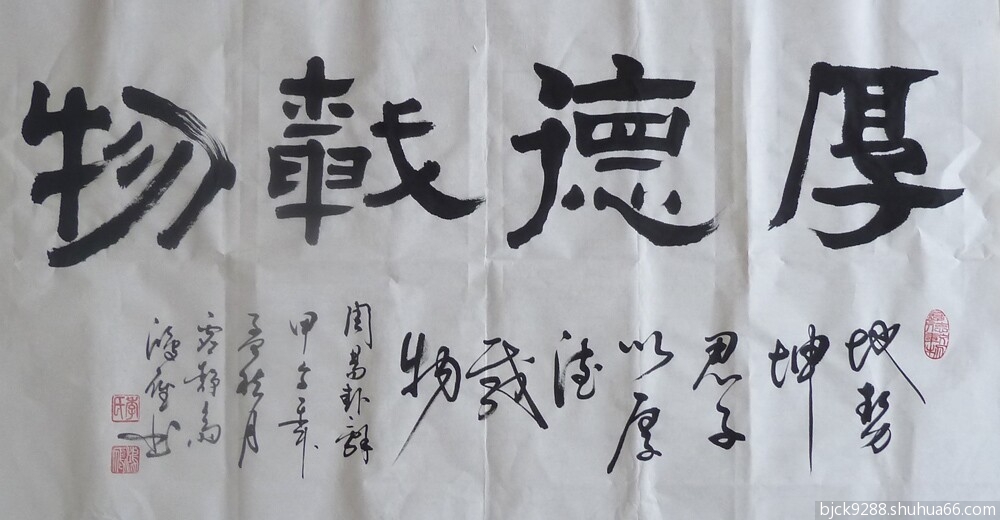 厚德載物
地势
坤
君子
以厚
德
載
物
周易卦辞
甲午年
孟秋月
鴻雁书
bjck9288.shuhua66.com